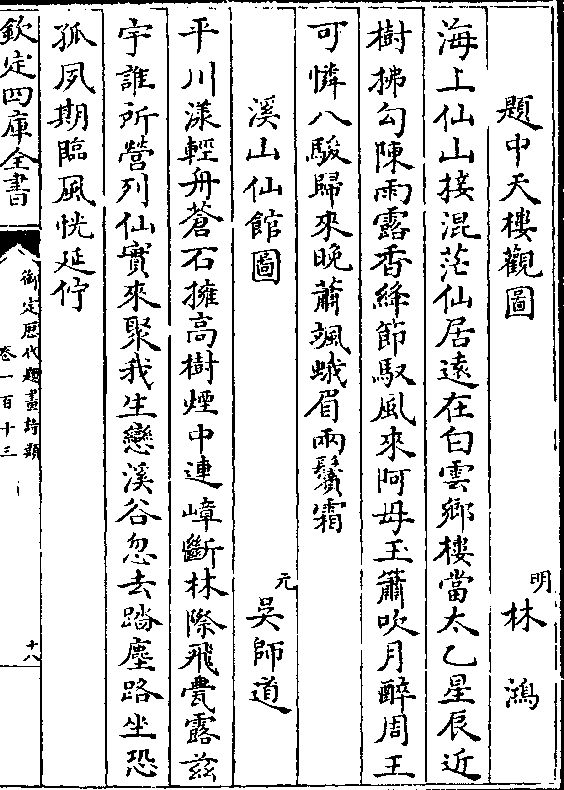 題中天樓觀圖　　明林　鴻
海上仙山接混茫仙居遠在白雲鄉樓當太乙星辰近
樹拂勾陳雨露香絳節馭風來阿母玉簫吹月醉周王
可憐八駿歸來晚蕭颯蛾眉兩鬢霜
溪山仙館圖　　元吳師道
平川漾輕舟蒼石擁高樹煙中連嶂斷林際飛甍露茲
宇誰所營列仙實來聚我生戀溪谷忽去踏塵路坐恐
孤夙期臨風恍延佇
欽定四庫全書
御定歷代題畫詩類
卷一百十三
十八